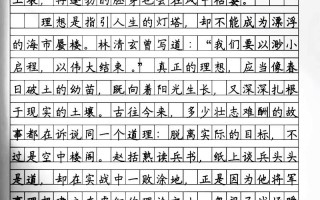 理想是指引人生的灯塔，却不能成为漂浮
的海市蜃楼。林清玄曾写道：“我们要以渺小
启程，以伟大结束。”真正的理想，应当像春
日破土的幼苗，既向着阳光生长，又深深扎根
于现实的土壤。古往今来，多少壮志难酬的故
事都在诉说同一个道理：脱离实际的目标，不
过是空中楼阁。赵括熟读兵书，纸上谈兵头头
是道，却在实战中一败涂地，正是因为他将军